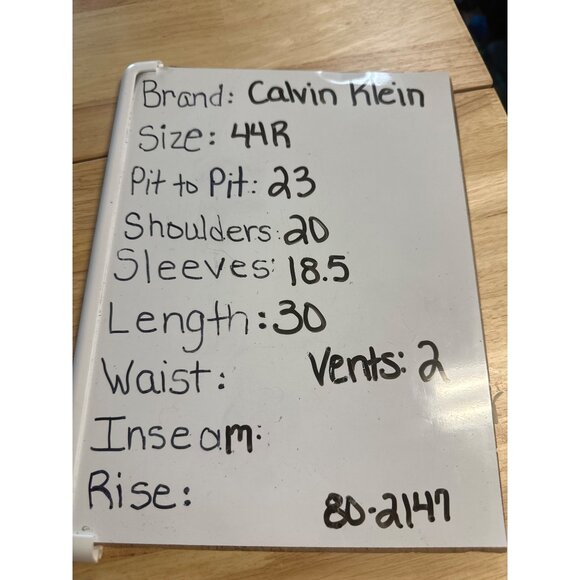 Brand: Calvin Klein
Size: 44R
Pit to Pit: 23
Shoulders: 20
Sleeves: 18.5
Length: 30
Waist: Vents: 2
Inseam:
Rise:
80-2147